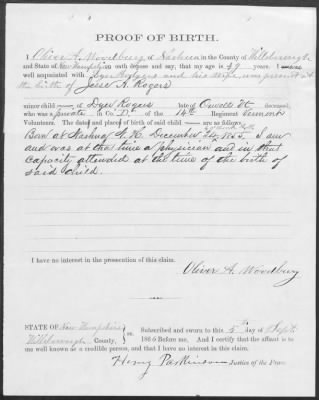 PROOF OF BIRTH.
I Oliver A. Woodbury of Nashua in the County of Hillsborough
and State of New Hampshire on oath depose and say, that my age is 49 years. I was
well acquainted with Dyer Rogers and his wife, was present at
the birth of Jesse A. Rogers
minor child of Dyer Rogers late of Orwell Vt deceased,
who was a private in Co. D. of the 14th Regiment Vermont
Volunteers. The dates and places of birth of said child are as follows.
Born at Nashua N. H. December 1855. I am
and was at that time a physician and in that
capacity attended at the time of the birth of
said child.
I have no interest in the prosecution of this claim.
Oliver A. Woodbury
STATE OF New Hampshire
Hillsborough County, } ss. Subscribed and sworn to this 5th day of Sept.
1866 Before me. And I certify that the affiant is to
me well known as a credible person, and that I have no interest in this claim.
Henry Parkinson Justice of the Peace